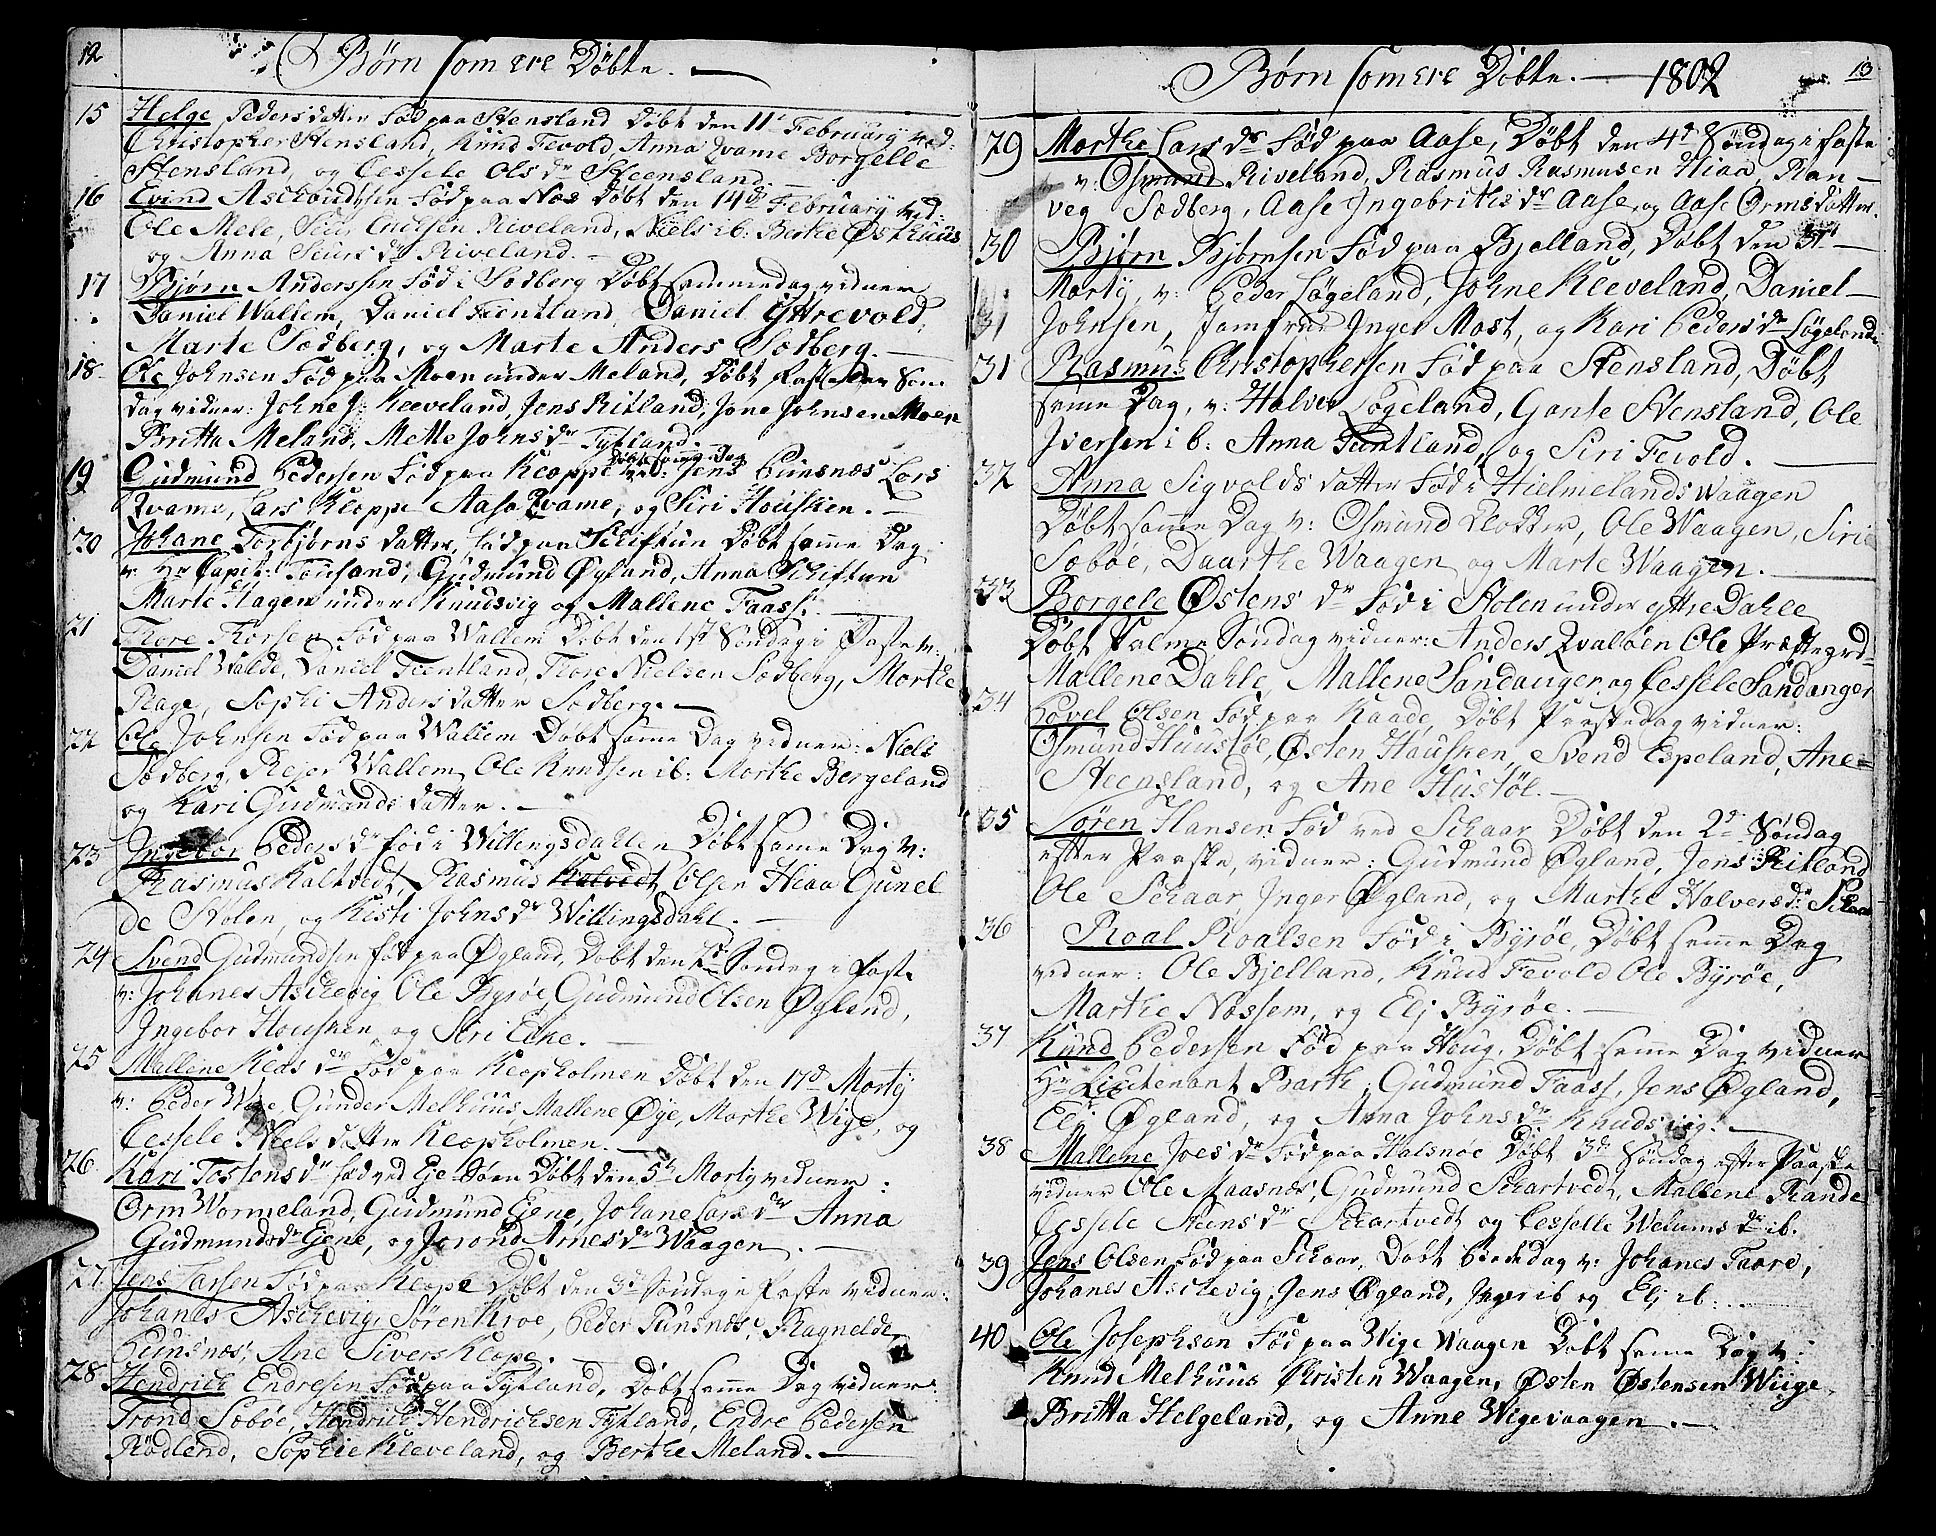 12
Børn som ere Døbte.
15 Helge Pedersdatter Fød paa Stensland Døbt den 11te February ved:
Christopher Stensland, Knud Fevold, Anna Qvame Borgelle
Stensland, og Cessele Ols dr Steensland.
16 Evind Aslagsen Fød paa Næs Døbt den 14de February ved:
Ole Mele, Siur Erichsen Riveland, Niels ib: Berthe Østhuus
og Anna Seurs dr Riveland.
17 Bjørn Anderssen Fød i Sødberg Døbt sammedag vidner
Daniel Wallem, Daniel Tientland, Daniel Yttrevold,
Marte Sødberg, og Marte Anders Sødberg.
18 Ole Johnsen Fød paa Moen under Meland, Døbt Fastelavn Søn-
dag vidner: Johne J: Kleeveland, Jens Ritland, Jone Johnsen Moen
Britta Meland, Mette Johns dr Tytland.
19 Gudmund Pedersen Fød paa Kloppe Døbt samme Dag v: Jens Punsnæs Lars
Qvame, Lars Kloppe Aasa Qvame, og Siri Housken.
20 Johane Torbjørns datter, Fød paa Schiftun Døbt samme Dag
v: Hr Capit: Tousand, Gudmund Øgland, Anna Schiftun
Marte Hagen under Knudsvig og Mallene Faass.
21 Tore Thorsen Fød paa Wallem Døbt den 1st Søndag i Faste v:
Daniel Walde, Daniel Tientland, Tore Nielsen Sødberg, Marthe
Rage, Sophi Anders datter Sødberg.
22 Ole Johnsen Fød paa Wallem Døbt samme Dag vidner: Niels
Sødberg, Rejer Wallem, Ole Knudsen ib: Marthe Bergeland
og Kari Gudmunds datter.
23 Ingebor Peders dr Fød i Willingsdahlen Døbt same Dag v:
Rasmus Kaltvedt, Rasmus Kalvedt Olsen Hiaa Gunel
de Stolen, og Kisti Johns dr Willingsdahl.
24 Svend Gudmundsen Fød paa Øgland, Døbt den 2d Søndag i Faste
v: Johanes Aschevig Ole Byrøe, Gudmund Olsen Øgland,
Ingebor Housken og Siri Eine.
25 Mallene Klas dr Fød paa Klopholmen Døbt den 17d Marty
v: Peder Wige, Gunder Melhuus Mallene Øye, Marthe Wige, og
Cessele Niels datter Klopholmen.
26 Kari Tostens dr fød ved Eje Søen Døbt den 5te Marty vidner:
Orm Wormeland, Gudmund Eene, Johane Lars dr Anna
Gudmunds dr Ejene, og Jorond Arnes dr Waagen.
27 Jens Larsen Fød paa Klope Døbt den 3d Søndag i Faste vidner:
Johanes Aschevig, Søren Kroe, Peder Punsnæs, Ragnelde
Punsnæs, Ane Sivers Klope.
28 Hendrich Endresen Fød paa Tytland, Døbt samme Dag vidner:
Trond Søbøe, Hendrich Hendrichsen Tytland, Endre Pedersen
Rødlend, Sophie Kleveland, og Berthe Meland.
Børn som ere Døbte. 1802
13
29 Marthe Lars dr Fød paa Aase, Døbt den 4de Søndag i Faste
v: Osmund Riveland, Rasmus Rasmusen Hiaa, Ran-
veg Sædberg, Aase Ingebrits dr Aase, og Aase Ormsdatter.
30 Bjørn Bjørnsen Fød paa Bjelland, Døbt den
Marty, v: Peder Løgeland, Johne Kleeveland, Daniel
31 Johnsen, Jomfrue Inger Most, og Kari Peders dr Løgeland
31 Rasmus Christophersen Fød paa Stensland, Døbt
same Dag, v: Halver Løgeland, Gonte Stensland, Ole
Iversen ib: Anna Tientland, og Siri Fevold.
32 Anna Sigvolds datter Fød i Hielmelands Waagen
Døbt samme Dag v: Osmund Klokker, Ole Waagen, Sirie
Søbøe, Daarthe Waagen og Marte Waagen.
33 Borgele Østens dr Fød i Stolen under yttre Dahle
Døbt Palme Søndag vidner: Anders Qvaløen Ole Præstegrd
Mallene Dahle, Mallene Sandanger og Cessele Sandanger
34 Povel Olsen Fød paa Kaade, Døbt Paaskedag vidner:
Osmund Huustøl, Østen Housken, Svend Espeland, Ane
Steensland, og Ane Hustøl.
35 Søren Hansen Fød ved Schaar Døbt den 2d Søndag
efter Paaske, vidner: Gudmund Øgland, Jens Ritland
Ole Schaar, Inger Øgland, og Marthe Halvers dr Schaar
36 Roal Roalsen Fød i Byrøe, Døbt samme Dag
vidner: Ole Bjelland, Knud Fevold Ole Byrøe,
Marthe Nøssem, og Elj Byrøe.
37 Knud Pedersen Fød paa Houg, Døbt samme Dag vidner
Hr Lieutenant Barth, Gudmund Faass, Jens Øgland,
Elj Øgland, og Anna Johns dr Knudsviig.
38 Mallene Joes dr Fød paa Halsnøe Døbt 3d Søndag efter Paaske
vidner Ole Maasnæs, Gudmund Schartvedt, Mallene Rande
Cessele Steens dr Schartvedt og Cesselle Welums dr ib.
39 Jens Olsen Fød paa Schaar, Døbt Beededag v: Johanes Faare,
Johanes Aschevig, Jens Øgland, Inger ib og Elj ib:
40 Ole Josephsen Fød paa Wige Waagen Døbt samme Dag v:
Knud Melhuus Christen Waagen, Østen Østensen Wiige
Britta Helgeland, og Anne Wigevaagen.